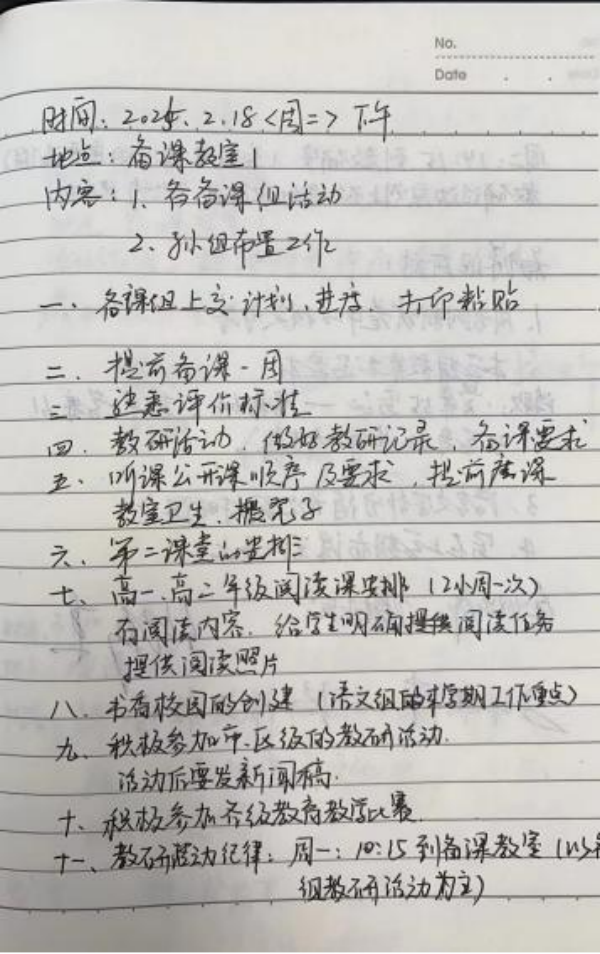 No.
Date
时间：2025.2.18<周二>下午
地点：备课教室1
内容：1、各备课组活动
2、孙组布置工作
一、备课组上交计划、进度、打印粘贴
二、提前备课一周
三、熟悉评价标准
四、教研活动，做好教研记录，备课要求
五、听课公开课顺序及要求，提前磨课
教室卫生、搬凳子
六、第二课堂的安排
七、高一、高二年级阅读课安排（2小周一次）
有阅读内容，给学生明确提供阅读任务
提供阅读照片
八、书香校园的创建（语文组的本学期工作重点）
九、积极参加市、区级的教研活动.
活动后要发新闻稿.
十、积极参加各级教育教学比赛
十一、教研活动纪律：周一：10:15到备课教室（以
组教研活动为主）